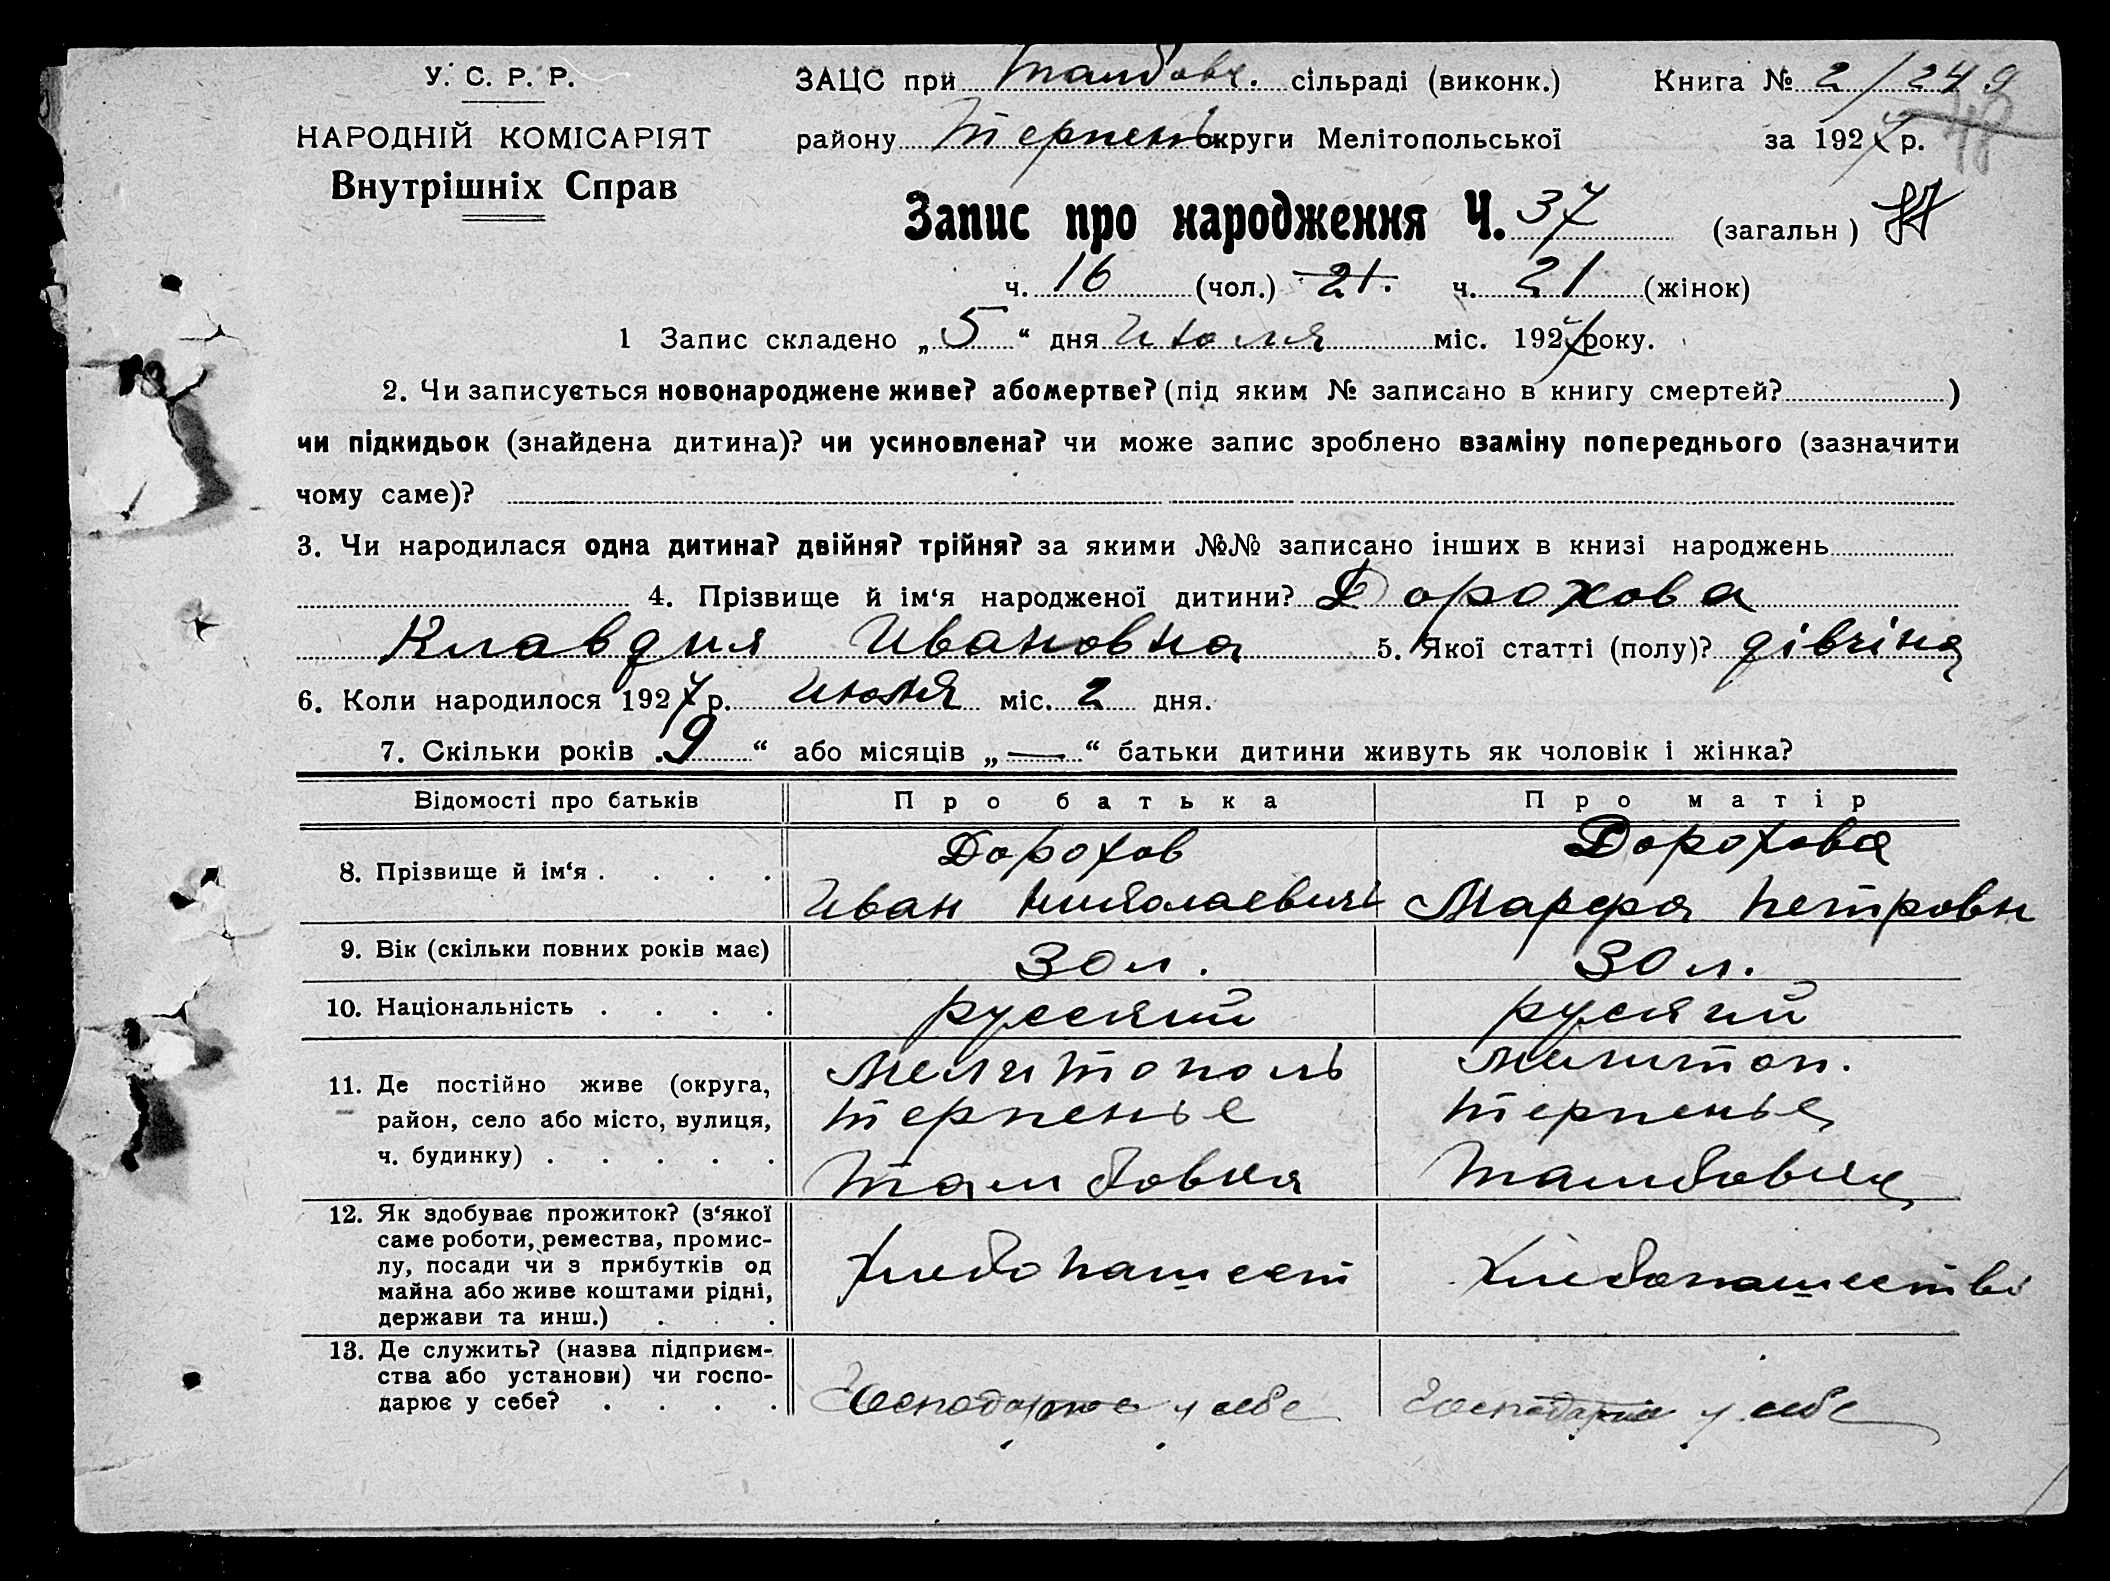 У. С. Р. Р.
НАРОДНІЙ КОМІСАРІЯТ
Внутрішніх Справ
ЗАЦС при Тамбовк. сільраді (виконк.)
району Терпень округи Мелітопольської
Книга № 2/249
за 1927 р.
Запис про народження Ч. 37 (загальн)
ч. 16 (чол.) 21. ч. 21 (жінок)
1 Запис складено „5“ дня Июля міс. 1927 року.
2. Чи записується новонароджене живе? або мертве? (під яким № записано в книгу смертей? )
чи підкидьок (знайдена дитина)? чи усиновлена? чи може запис зроблено взаміну попереднього (зазначити
чому саме)?
3. Чи народилася одна дитина? двійня? трійня? за якими №№ записано інших в книзі народжень
4. Прізвище й ім‘я народженої дитини? Дорохова
Клавдия Ивановна 5. Якої статті (полу)? дівчіна
6. Коли народилося 1927 р. июля міс. 2 дня.
7. Скільки років „9“ або місяців „—“ батьки дитини живуть як чоловік і жінка?
Відомості про батьків Про батька Про матір
8. Прізвище й ім‘я . . . . Дорохов Иван Николаевич Дорохова Марфа Петровн
9. Вік (скільки повних років має) 30 л. 30 л.
10. Національність . . . . русский русский
11. Де постійно живе (округа, Мелитополь Мелитоп.
район, село або місто, вулиця, Терпенье Терпенье
ч. будинку) . . . . . Тамбовка Тамбовка
12. Як здобуває прожиток? (з‘якої
саме роботи, ремества, промис-
лу, посади чи з прибутків од
майна або живе коштами рідні,
держави та инш.) . . . Хлебопашест Хлебопашество
13. Де служить? (назва підприєм-
ства або установи) чи госпо-
дарює у себе? . . . . Господарює у себе Господарює у себе